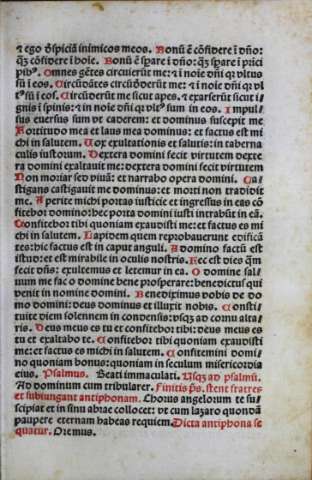 ⁊ ego dſpiciā inimicos meos. Bonū ē cōfidere ī dño:
q̄ȝ cōfidere ī hoīe. Bonū ē ſpare ī dño: q̄ȝ ſpare ī prīci
pibꝰ. Omnes gētes circuierūt me: ⁊ ī noīe dñi qꝛ vltus
ſū ī eos. Circūdātes circūdederūt me: ⁊ ī noīe dñi qꝛ vl
tꝰ ſū ī eos. Circūderūt me ſicut apes. ⁊ exarſerūt ſicut i⸗
gnis ī ſpinis: ⁊ in noīe dñi qꝛ vltꝰ ſum in eos. Impul⸗
ſus euerſus ſum vt caderem: et dominus ſuſcepit me
Fortitudo mea et laus mea dominus: et factus eſt mi
chi in ſalutem. Vox exultationis et ſalutis: in taberna
culis iuſtorum. Dextera domini fecit virtutem dexte
ra domini exaltauit me: dextera domini fecit virtutem
Non moriar ſed viuā: et narrabo opera domini. Ca⸗
ſtigans caſtigauit me dominus: et morti non tradidit
me. Aperite michi portas iuſticie et ingreſſus in eas cō
fitebor domino: hec porta domini iuſti intrabūt in eā.
Confitebor tibi quoniam exaudiſti me: et factus es mi
chi in ſalutem. Lapidem quem reprobauerunt edificā
tes: hic factus eſt in caput anguli. A domino factū eſt
iſtud: et eſt mirabile in oculis noſtris. Hec eſt dies q̄m
fecit dñs: exultemus et letemur in ea. O domine ſal⸗
uum me fac o domine bene proſperare: benedictus qui
venit in nomine domini. Benediximus vobis de do⸗
mo domini: deus dominus et illuxit nobis. Conſti⸗
tuite diem ſolennem in condenſis: vſqȝ ad cornu alta⸗
ris. Deus meus es tu et confitebor tibi: deus meus es
tu et exaltabo te. Confitebor tibi quoniam exaudiſti
me: et factus es michi in ſalutem. Confitemini domi⸗
no quoniam bonus: quoniam in ſeculum miſericordia
eius. Pſalmus. Beati immaculati. Uſqȝ ad pſalmū.
Ad dominum cum tribularer. Finitis pſ. ſtent fratres
et ſubiungant antiphonam. Chorus angelorum te ſu⸗
ſcipiat et in ſinu abrae collocet: vt cum lazaro quondā
paupere eternam habeas requiem. Dicta antiphona ſe
quatur. Oremus.